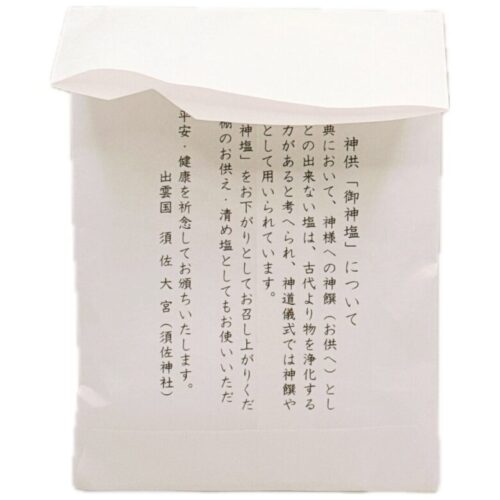 神供「御神塩」について
典において、神様への神饌（お供へ）とし
との出来ない塩は、古代より物を浄化する
力があると考へられ、神道儀式では神饌や
として用いられています。
神塩」をお下がりとしてお召し上がりくだ
棚のお供え・清め塩としてもお使いいただ
平安・健康を祈念してお頒ちいたします。
出雲国　須佐大宮（須佐神社）